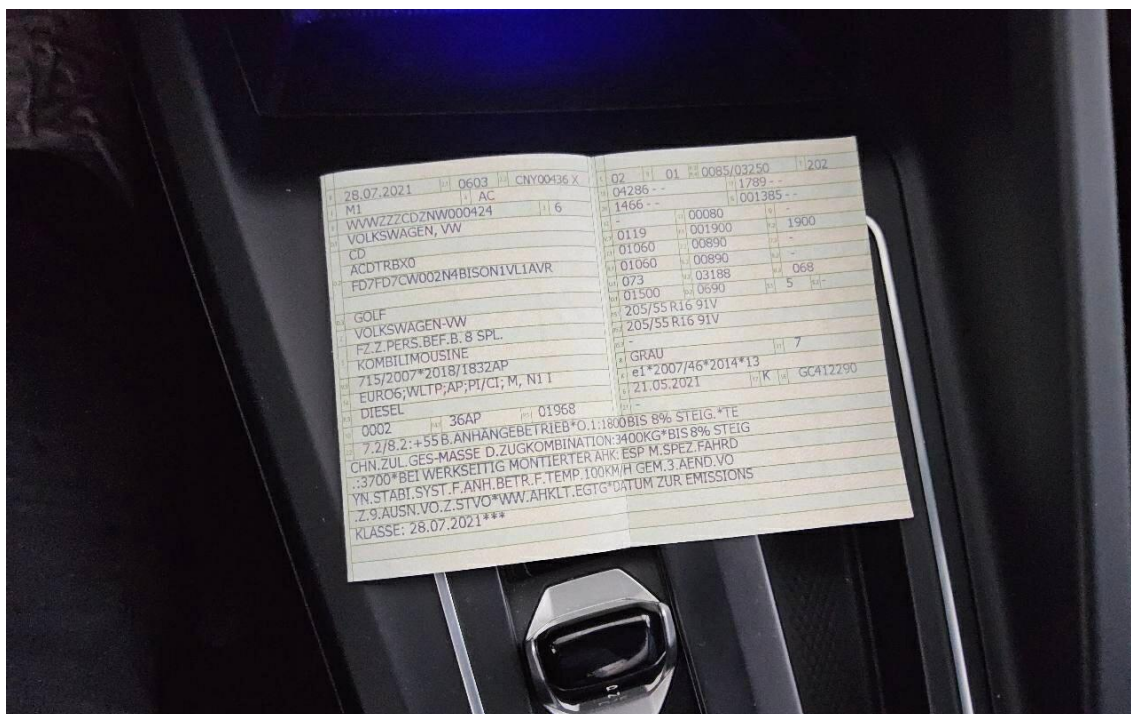 28.07.2021 0603 CNY00436 X
M1 AC
WVWZZZCDZNW000424 6
VOLKSWAGEN, VW
CD
ACDTRBX0
FD7FD7CW002N4BISON1VL1AVR
GOLF
VOLKSWAGEN-VW
FZ.Z.PERS.BEF.B. 8 SPL.
KOMBILIMOUSINE
715/2007*2018/1832AP
EURO6;WLTP;AP;PI/CI; M, N1 I
DIESEL
0002 36AP 01968
02 01 0085/03250 202
04286 - - 1789 - -
1466 - - 001385 - -
- 00080 -
0119 001900 1900
01060 00890 -
01060 00890 -
073 03188 068
01500 0690 5 -
205/55 R16 91V
205/55 R16 91V
-
GRAU 7
e1*2007/46*2014*13
21.05.2021 K GC412290
-
7.2/8.2:+55 B.ANHÄNGEBETRIEB*O.1:1800 BIS 8% STEIG.*TE
CHN.ZUL.GES-MASSE D.ZUGKOMBINATION:3400KG*BIS 8% STEIG
.:3700*BEI WERKSEITIG MONTIERTER AHK: ESP M.SPEZ.FAHRD
YN.STABI.SYST.F.ANH.BETR.F.TEMP.100KM/H GEM.3.AEND.VO
.Z.9.AUSN.VO.Z.STVO*WW.AHKLT.EGTG*DATUM ZUR EMISSIONS
KLASSE: 28.07.2021***
P
N